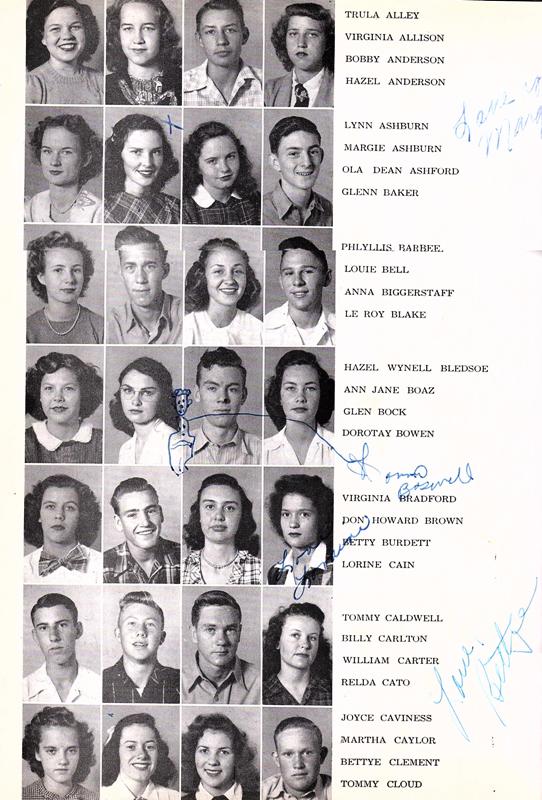 TRULA ALLEY
VIRGINIA ALLISON
BOBBY ANDERSON
HAZEL ANDERSON
LYNN ASHBURN
MARGIE ASHBURN
OLA DEAN ASHFORD
GLENN BAKER
PHLYLLIS BARBEE
LOUIE BELL
ANNA BIGGERSTAFF
LE ROY BLAKE
HAZEL WYNELL BLEDSOE
ANN JANE BOAZ
GLEN BOCK
DOROTAY BOWEN
Boswell
VIRGINIA BRADFORD
DON HOWARD BROWN
BETTY BURDETT
LORINE CAIN
TOMMY CALDWELL
BILLY CARLTON
WILLIAM CARTER
RELDA CATO
Love
JOYCE CAVINESS
MARTHA CAYLOR
BETTYE CLEMENT
TOMMY CLOUD